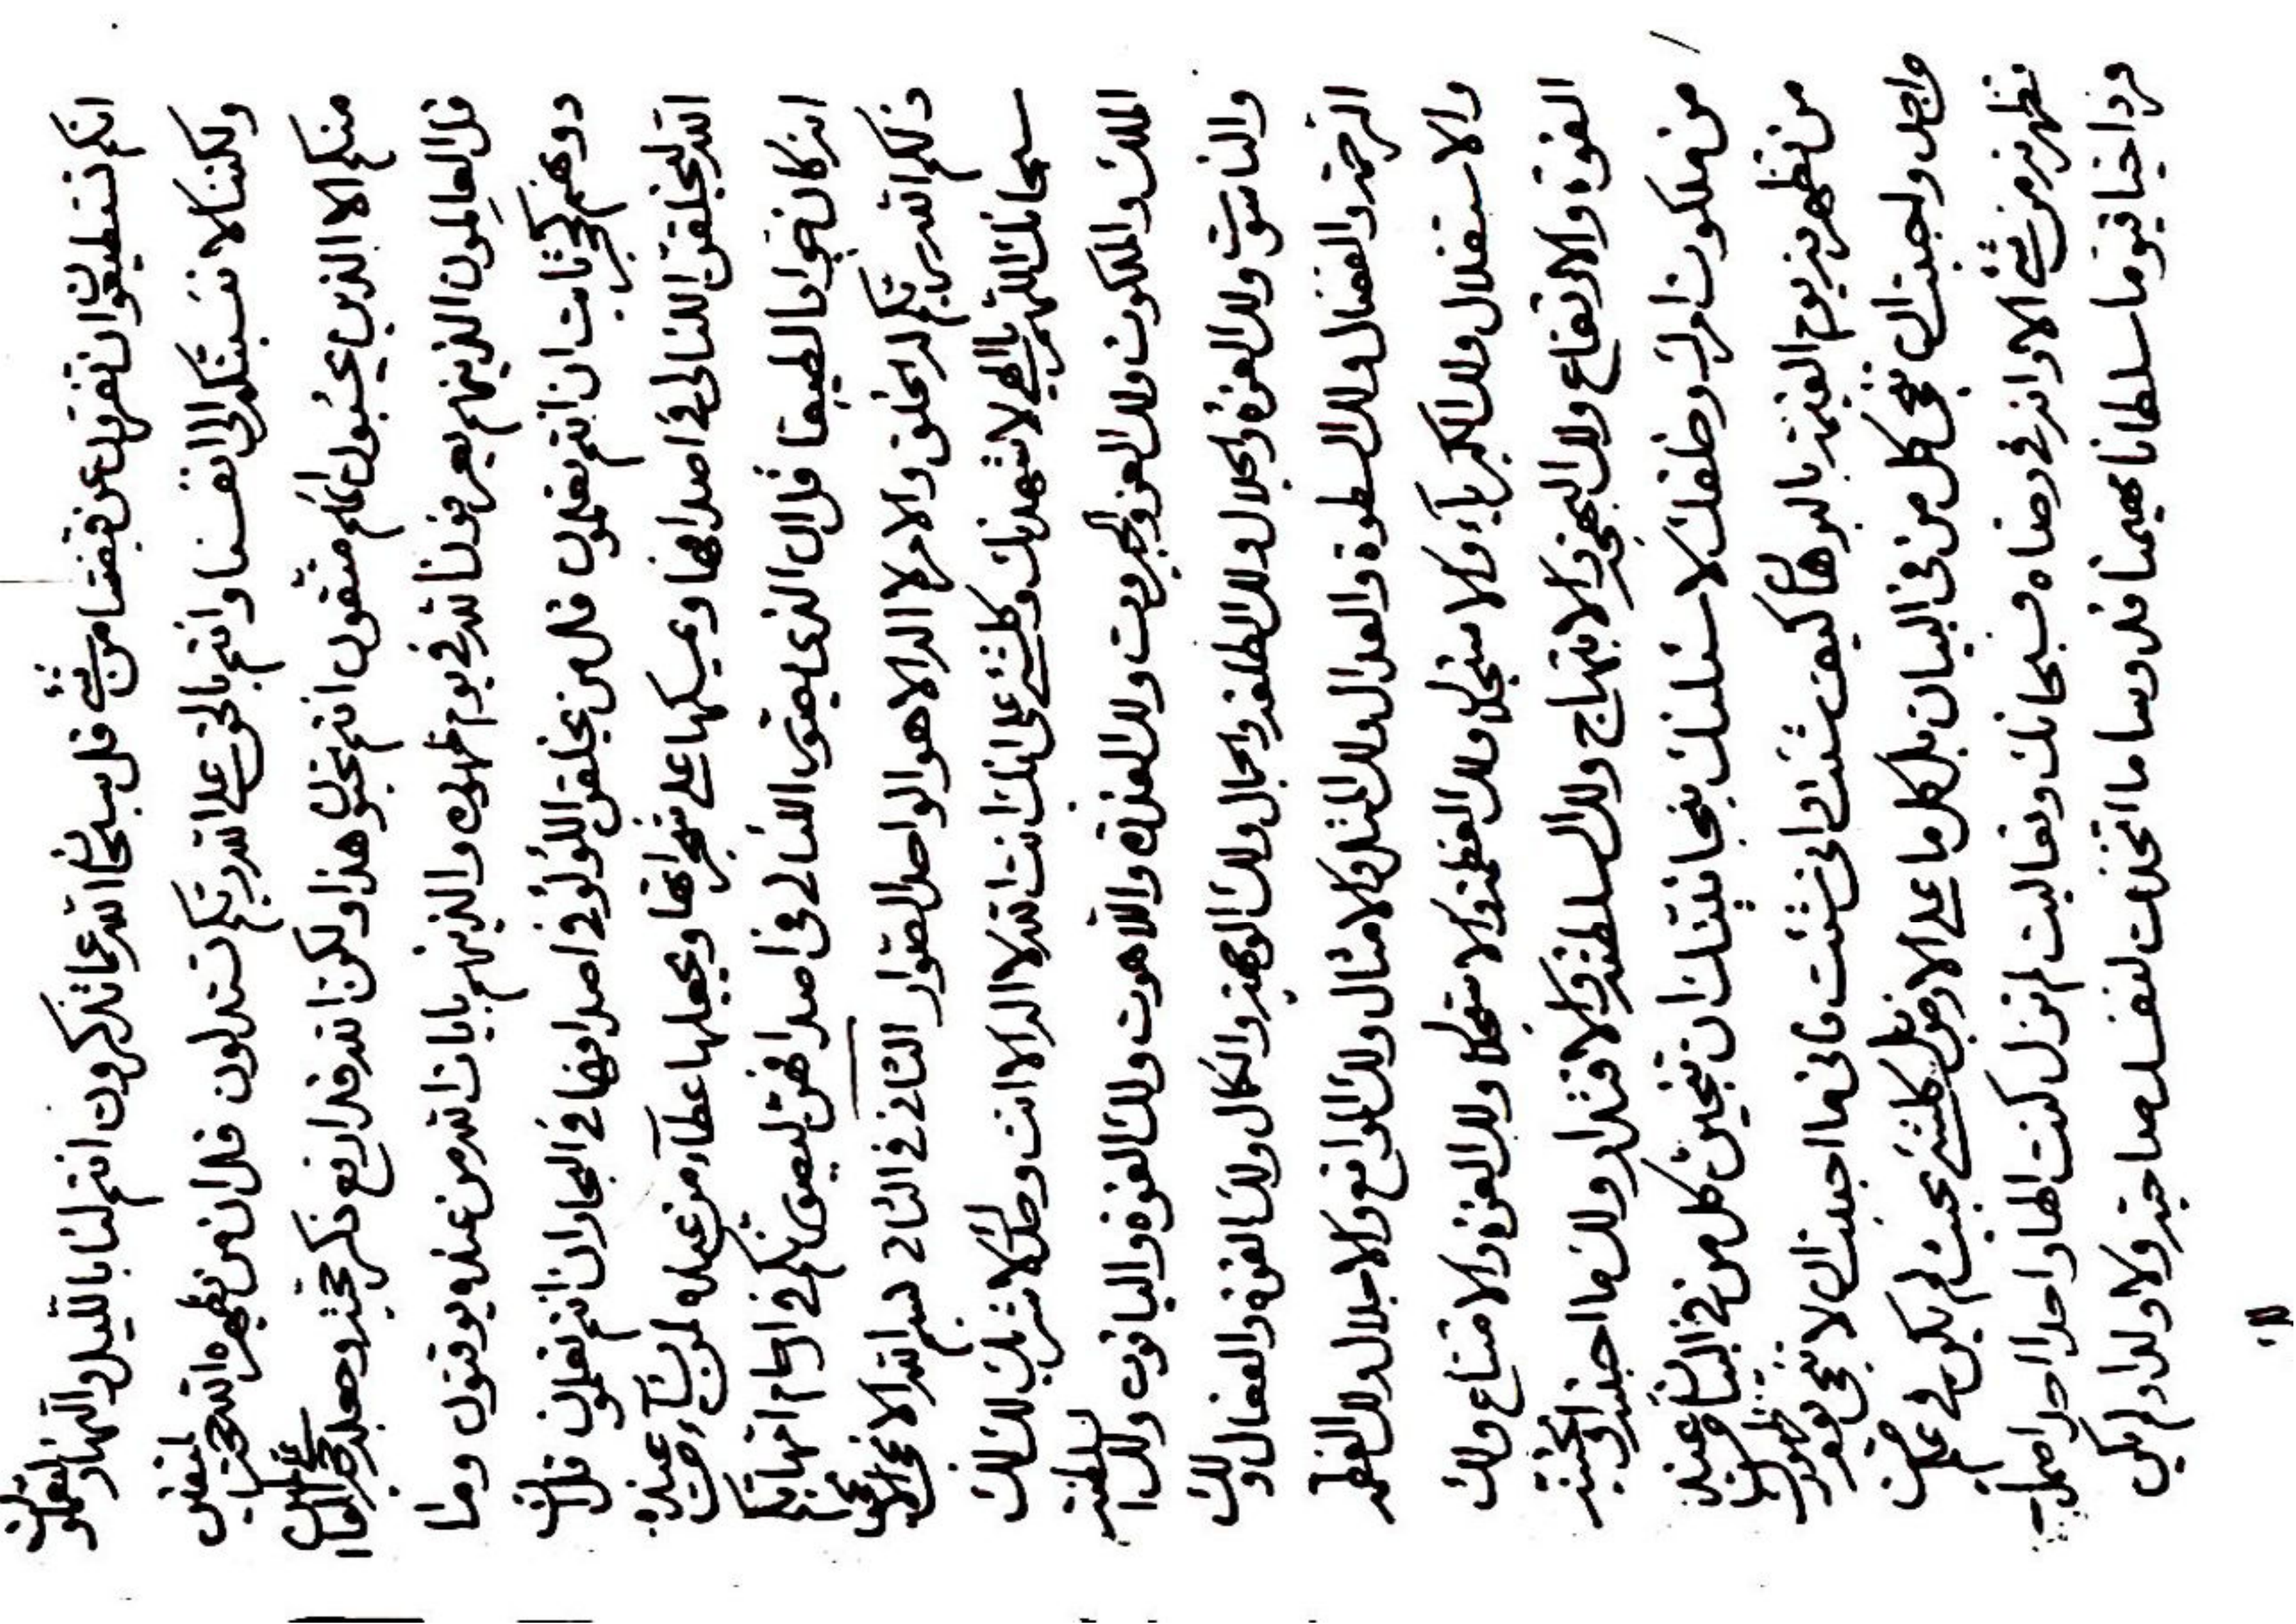 انكم تستطيعون ان تفرون عن قبضتنا من شیء قل سبحان الله عما تذكرون انتم لنا بالليل والنهار لتعملون
ولكننا لا نسبنكم الى انفسنا وانتم بالحق على الله ربكم تستدلون قل ان من يظهره الله يحب لنفس
منكم الا الذين يحبون انكم متقون انتم تحبون هذا ولكن الله قد ارفع ذكر محبته وجعله
قل العالمون الذينهم يعرفون الله في يوم ظهوره والذينهم بايات الله من عنده يوقنون وما
دونهم كحجر ثابت ان انتم تعلمون قل من يخلق اللؤلؤ في اصدافها في البحار ان انتم تعلمون قل الله
الله ليخلقن اللئالي في اصدافها ويمسكها على شجراتها ويجعلها عطاء من عنده لمن يشاء من عبيده
انه كان خوابا لطيفا قل ان الذي يصور اللئالي في اصدافهن ليصورنكم في ارحام امهاتكم
ذلكم الله ربكم له الخلق والامر لا اله الا هو الواحد الصوار الثاني في الثاني بسم الله الا
سبحانك اللهم يا الهي لاشهدنك وكلشیء على انك انت الله لا اله الا انت وحدك لا شريك لك لك
الملك والملكوت ولك العز والجبروت ولك القدرة واللاهوت ولك القوة والياقوت ولك السلطنة
والناسوت ولك العزة والجلال ولك الطلعة والجمال ولك الوجهة والكمال ولك القوة والفعال ولك
الرحمة والفضال ولك السطوة والعدال ولك المثل والامثال ولك المواقع والاجلال ولك العظمة
والاستقلال ولك الكبرياء والاستجلال ولك العظمة والاستقلال ولك العزة والامتناع ولك
القوة والارتفاع ولك البهجة والابتهاج ولك السلطنة والاقتدار ولك ما احببته او تحبنه
من ملكوت امرك وخلقك لاسئلنك بنجانيتك ان تنجين كل من في البيان عند
من تظهرنه يوم القيمة بالبرهان كيف شئت وانى شئت فاني ما احببت ان لا ينجى بعد ظهورك
واحد ولاحبت ان ينجى كل من في البيان بل كل ما على الارض بل كلشیء بحيث لم يكن في علمك
تظهرنه من شیء الا وانه في رضاه فسبحانك وتعاليت لم تزل كنت الها واحدا احدا صمدا
فردا حيا قيوما سلطانا مهيمنا قدوسا ما اتخذت لنفسك صاحبة ولا ولدا ولم يكن